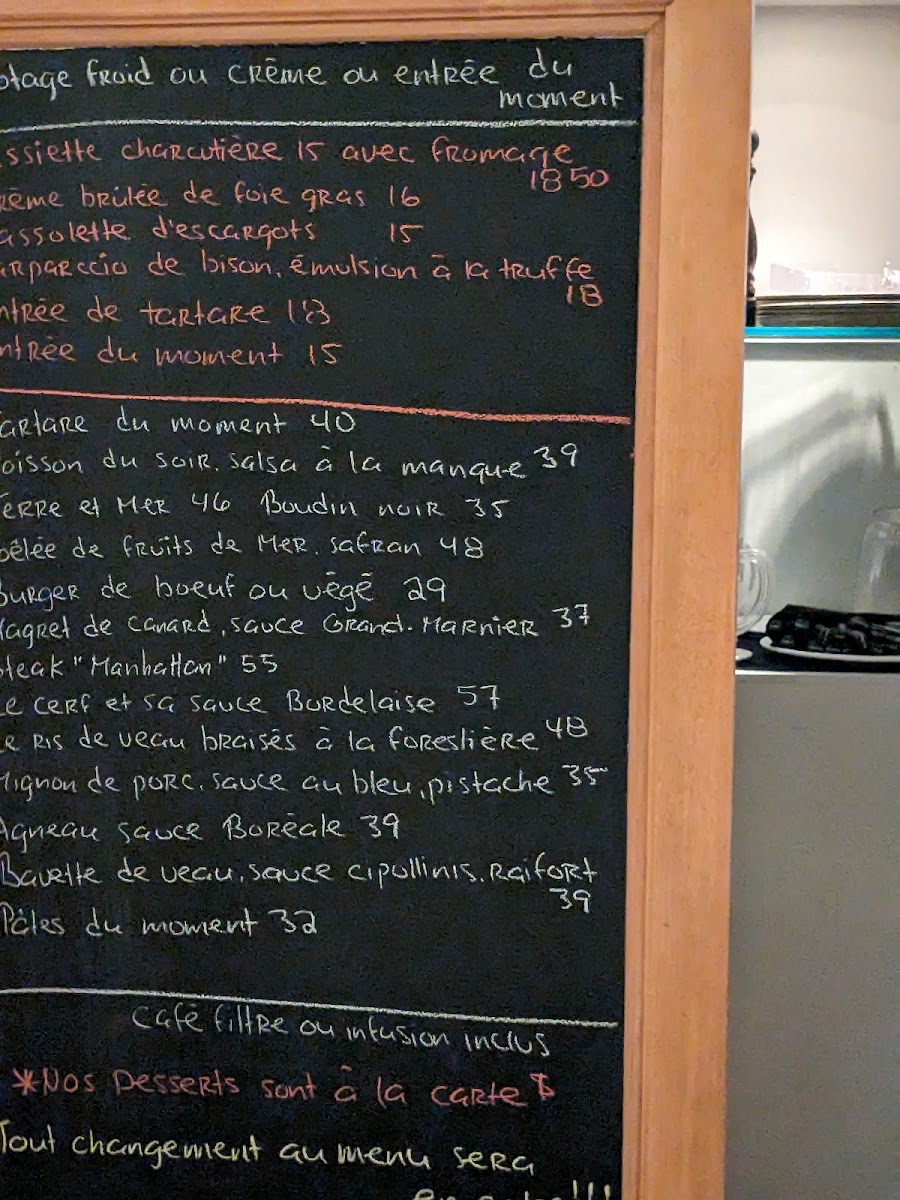 otage froid ou crème ou entrée du
moment
ssiette charcutière 15 avec fromage
18 50
rème brûlée de foie gras 16
assolette d'escargots 15
arparccio de bison, émulsion à la truffe
18
ntrée de tartare 18
ntrée du moment 15
artare du moment 40
oisson du soir, salsa à la mangue 39
erre et Mer 46 Boudin noir 35
oêlée de fruits de Mer, safran 48
Burger de boeuf ou végé 29
Magret de canard, sauce Grand-Marnier 37
steak "Manhattan" 55
Le cerf et sa sauce Bordelaise 57
Le Ris de veau braisés à la forestière 48
Mignon de porc, sauce au bleu, pistache 35
Agneau sauce Boréale 39
Bavette de veau, sauce cipollinis, Raifort
39
Pâtes du moment 32
café filtre ou infusion inclus
*Nos Desserts sont à la carte $
Tout changement au menu sera